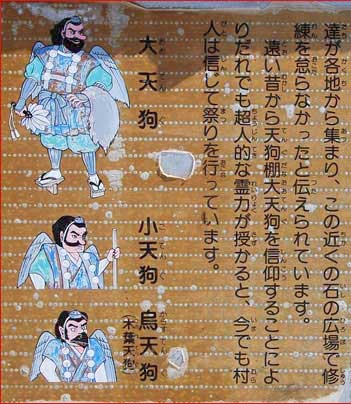 達が各地から集まり、この近くの石の広場で修
練を怠らなかったと伝えられています。
遠い昔から天狗棚大天狗を信仰することによ
りだれでも超人的な霊力が授かると、今でも村
人は信じて祭りを行っています。
大天狗
小天狗
烏天狗
(木葉天狗)